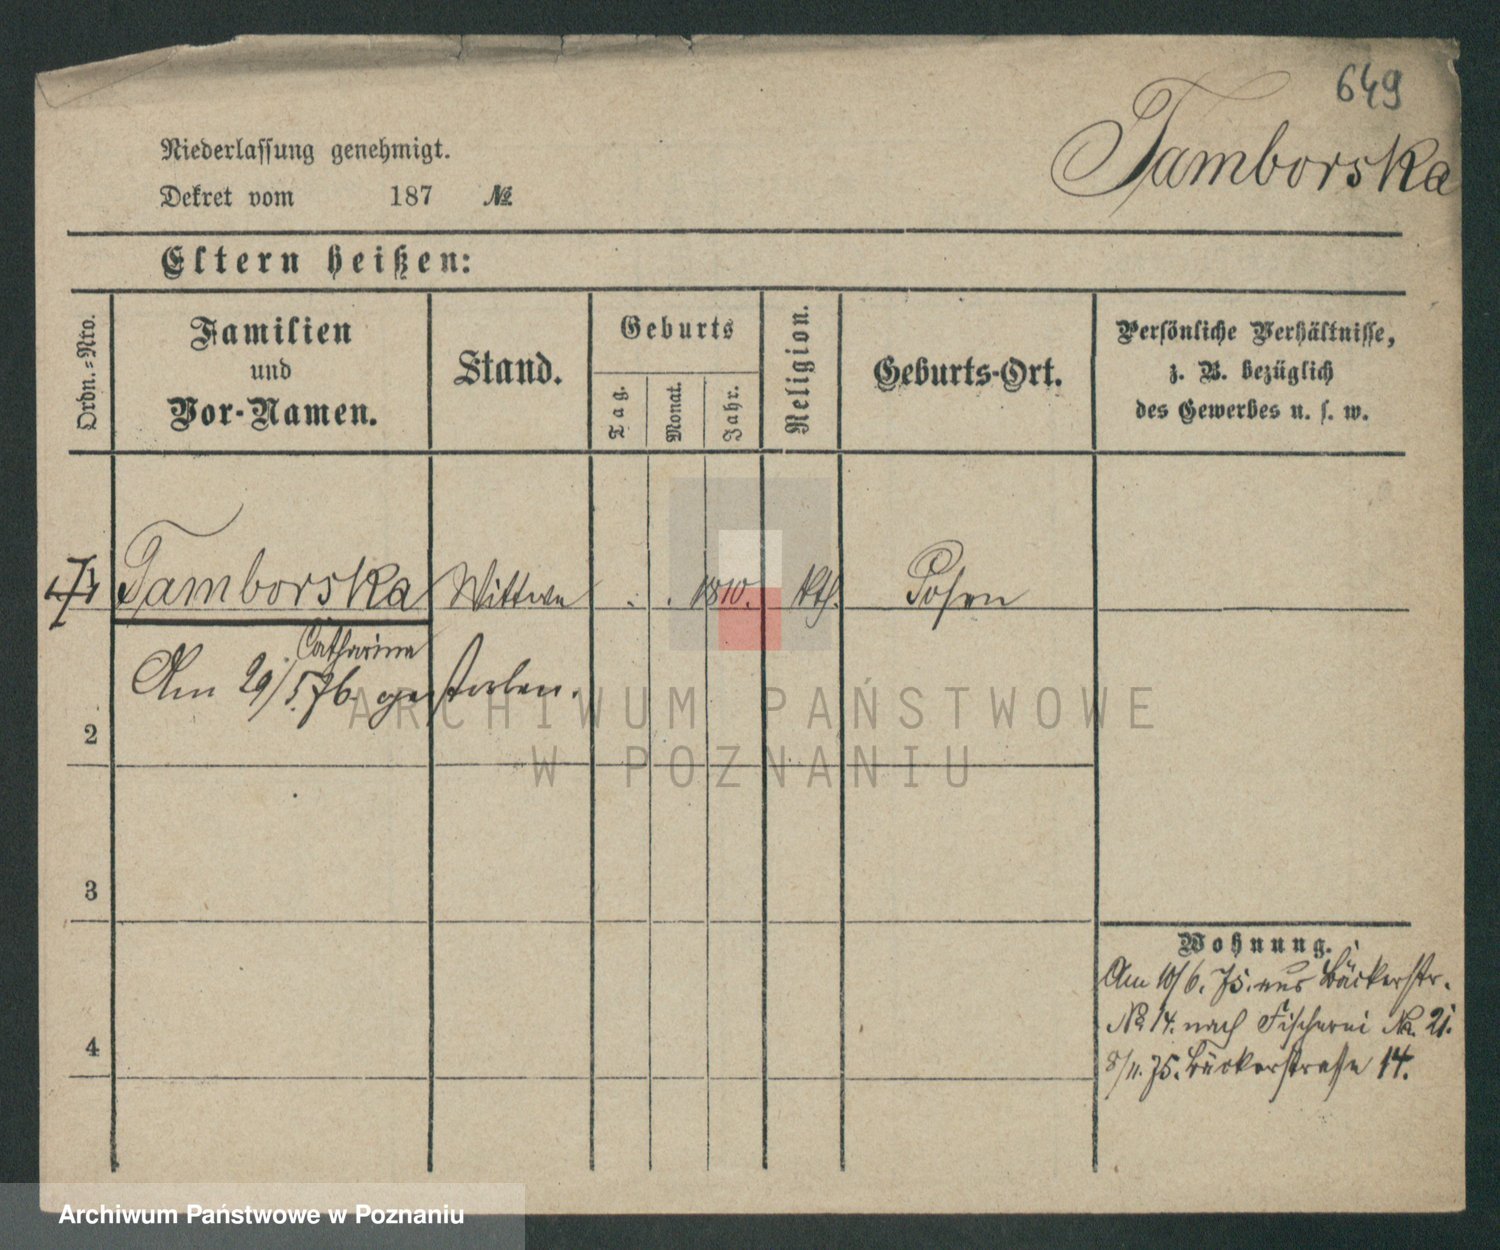 649
Tamborska
Niederlassung genehmigt.
Dekret vom 187 №
Eltern heißen:
Ordn.-Nro.
Familien
und
Vor-Namen.
Stand.
Geburts
Tag.
Monat.
Jahr.
Religion.
Geburts-Ort.
Persönliche Verhältnisse,
z. B. bezüglich
des Gewerbes u. s. w.
Tamborska Wittwe . . 1810. kth. Posen
Catharina
Am 29/5.76 gestorben.
2
3
4
Wohnung.
Am 10/6. 75. aus Bäckerstr.
№ 14. nach Fischerei №. 21.
8/11. 75. Bäckerstraße 14.
ARCHIWUM PAŃSTWOWE
W POZNANIU
Archiwum Państwowe w Poznaniu